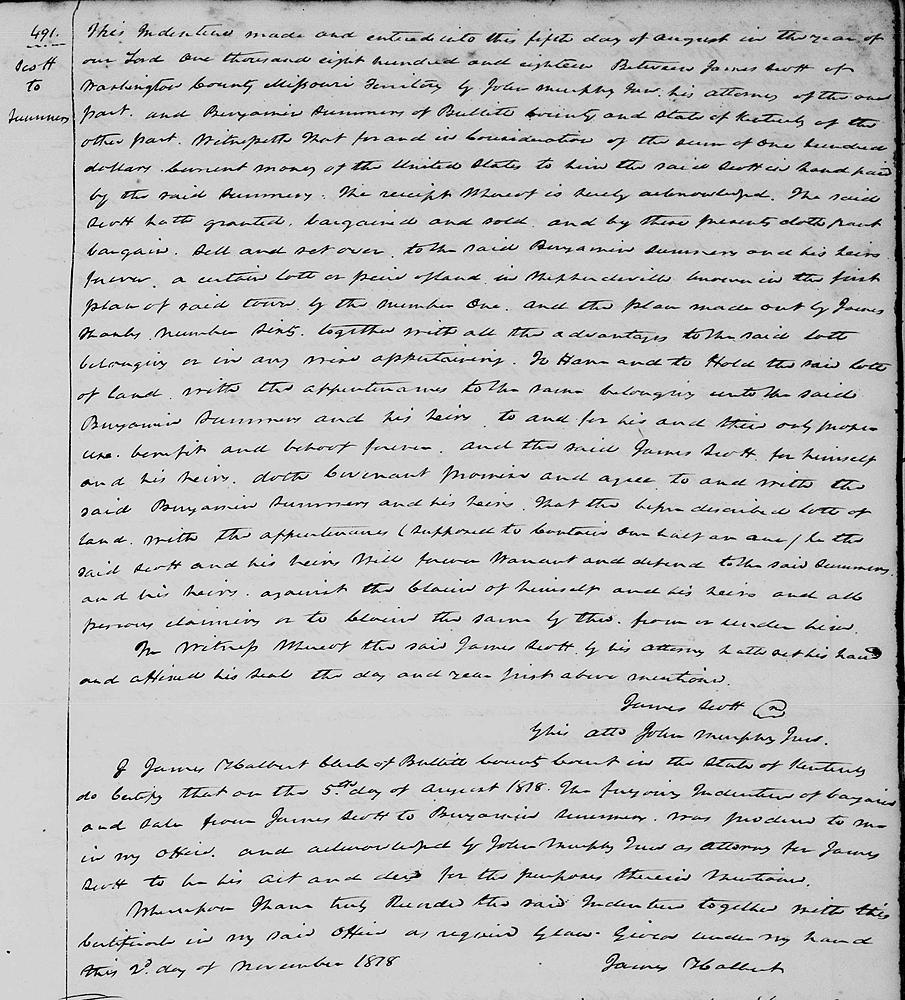 491.
Scott
to
Summers
This Indenture made and entered into this fifth day of August in the year of
our Lord One thousand eight hundred and eighteen Between James Scott of
Washington County Missouri Territory by John Murphy Junr. his attorney of the one
part. and Benjamin Summers of Bullitt County and State of Kentucky of the
other part. Witnesseth That for and in Consideration of the sum of One hundred
dollars Current money of the United States to him the said Scott in hand paid
by the said Summers. The receipt Whereof is hereby acknowledged. The said
Scott hath granted, bargained and sold, and by these presents doth grant
bargain. Sell and set over. to the said Benjamin Summers and his heirs
forever. a certain lott or peice of land in Shepherdsville known in the first
plan of said town by the number One. and the plan made out by James
Shanks number Sixty. together with all the advantages to the said lott
belonging or in any wise appertaining. To Have and to Hold the said lott
of land. with the appurtenances to the same belonging unto the said
Benjamin Summers and his heirs. to and for his and their only proper
use. benefit and behoof forever. and the said James Scott for himself
and his heirs. doth Covenant promise and agree to and with the
said Benjamin Summers and his heirs. That the before described lott of
land. with the appurtenances (supposed to Contain One half an acre) he the
said Scott and his heirs Will forever Warrant and defend to the said Summers.
and his heirs. against the Claim of himself and his heirs and all
persons claiming or to Claim the same by the. from or under him.
In Witness Whereof the said James Scott by his attorney hath set his hand
and affixed his Seal the day and year first above mentioned.
James Scott
By his atto John Murphy Junr.
I James Halbert Clerk of Bullitt County Court in the State of Kentucky
do Certify that on the 5th day of August 1818. The forgoing Indenture of bargain
and Sale from James Scott to Benjamin Summers. was produced to me
in my office. and acknowledged by John Murphy Junr as attorney for James
Scott to be his act and deed for the purposes therein mentioned.
Whereupon I have truly Recorded the said Indenture together with this
Certificate in my said Office as required by law. Given under my hand
this 2d. day of November 1818
James Halbert